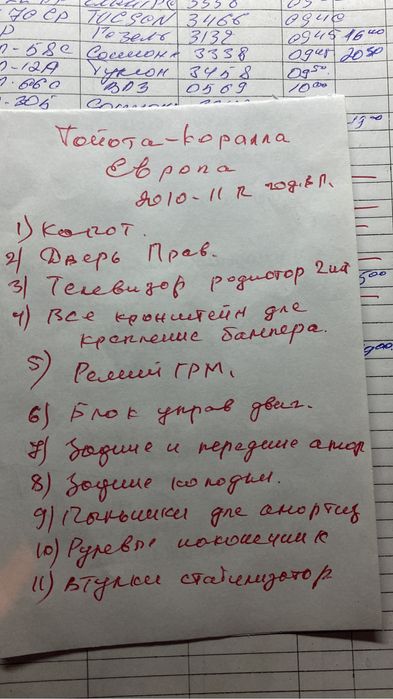 TUCSON 3466 0940
Газель 3132 0945 1640
Соомонг 3338 0945 2050
-12А Туклон 3458 0950
-660 ВАЗ 0569 1000
-305
Тойота-коралла
Европа
2010-11 г год.вп.
1) Копот.
2) Дверь Прав.
3) Телевизор родиотор 2шт
4) Все кронштейн для
крепление бампера.
5) Ремний ГРМ.
6) Блок управ двиг.
7) Задние и передние аморт
8) Задние колодки.
9) Пыльники для амортиз
10) Рулевые наконечник
11) втулки стабилизатор